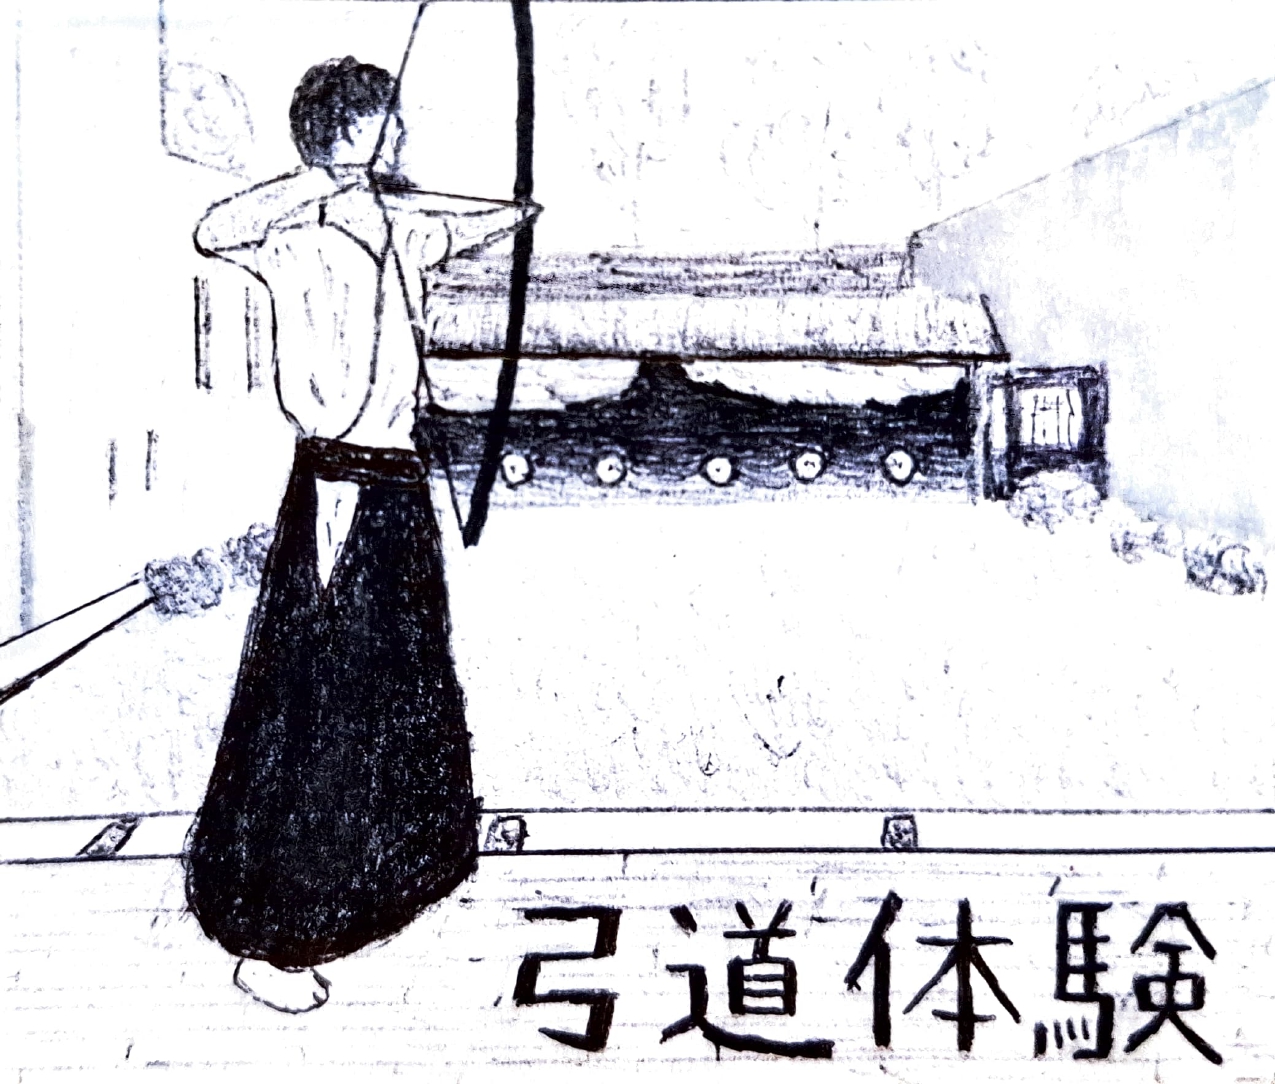 弓道体験